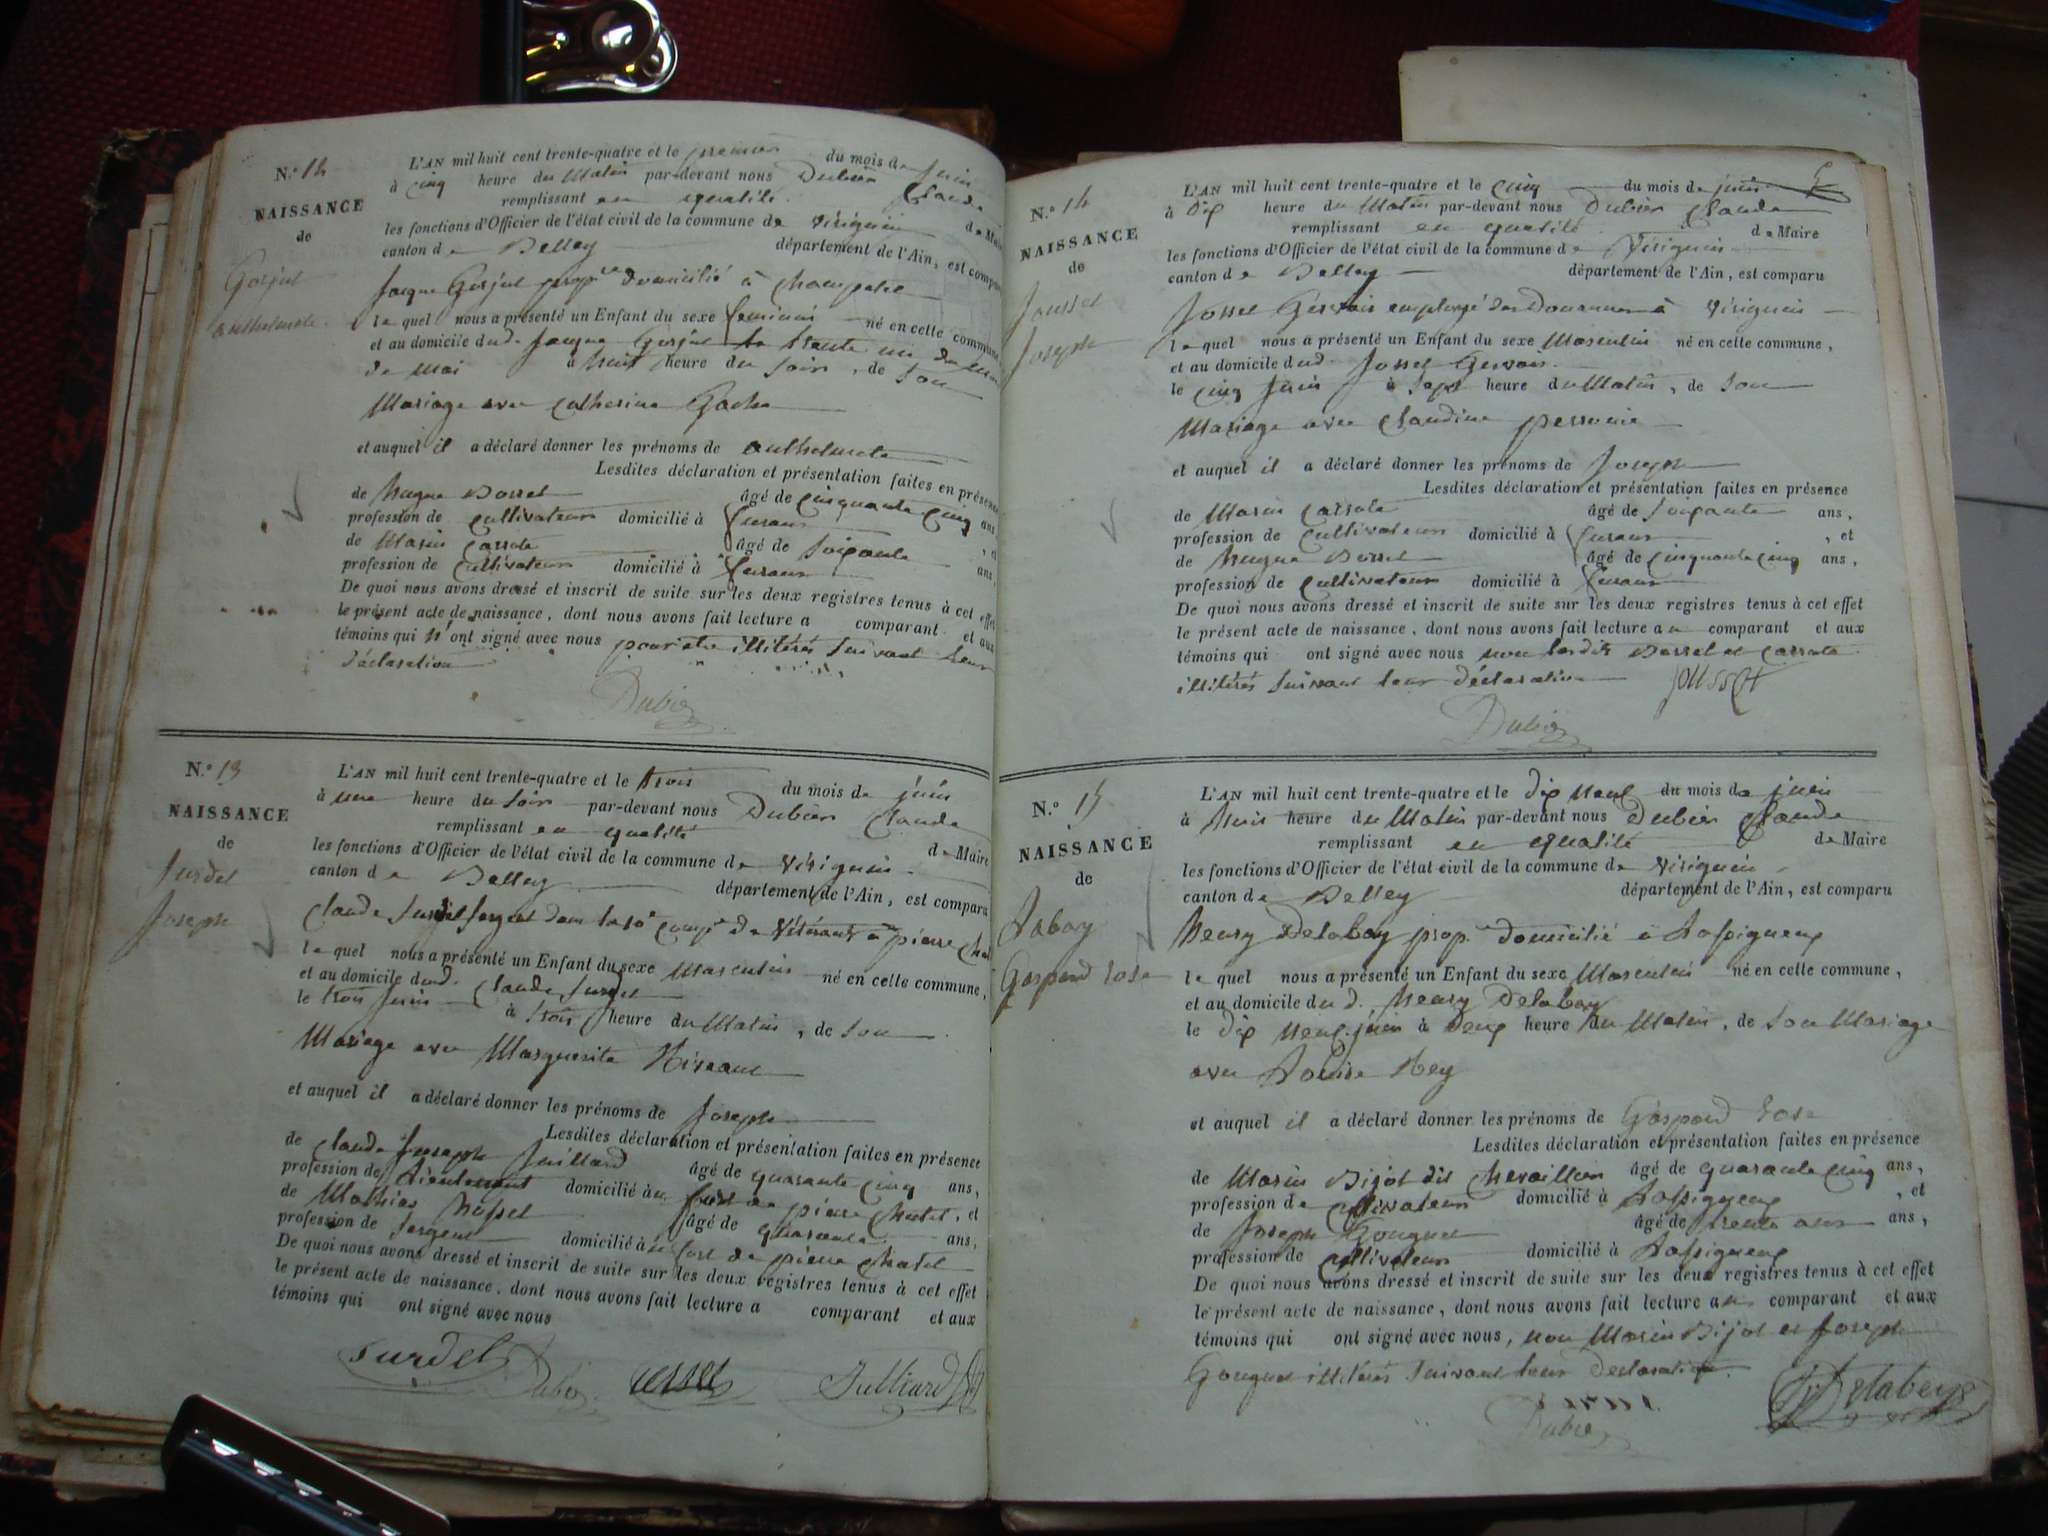 N.° 12
NAISSANCE
de
Gorjut
anthelmete
L'AN mil huit cent trente-quatre et le premier du mois de juin
à cinq heure du Matin par-devant nous Dubien Claude
remplissant en qualité de Maire
les fonctions d'Officier de l'état civil de la commune de Virignin
canton de Belley département de l'Ain, est comparu
Jacque Gorjut prop.re domicilié à
lequel nous a présenté un Enfant du sexe feminin né en cette commune
et au domicile dud. Jacque Gorjut le trente un du mois
de Mai à huit heure du Soir, de Son
Mariage avec Catherine Gache
et auquel il a déclaré donner les prénoms de anthelmete
Lesdites déclaration et présentation faites en présence
de hugue Borset âgé de cinquante cinq ans,
profession de cultivateur domicilié à , et
de Marin Carrote âgé de Soixante ans,
profession de Cultivateur domicilié à
De quoi nous avons dressé et inscrit de suite sur les deux registres tenus à cet effet
le présent acte de naissance, dont nous avons fait lecture a comparant et aux
témoins qui n'ont signé avec nous pour être illitérés Suivant leur
déclaration
Dubien
N.° 13
NAISSANCE
de
Surdet
Joseph
L'AN mil huit cent trente-quatre et le trois du mois de juin
à une heure du Soir par-devant nous Dubien Claude
remplissant en qualité de Maire
les fonctions d'Officier de l'état civil de la commune de Virignin
canton de Belley département de l'Ain, est comparu
Claude Surdet Sergent dans la 10e comp.e de Vétérants a pierre Cha
lequel nous a présenté un Enfant du sexe Masculin né en cette commune,
et au domicile dud. Claude Surdet
le trois Juin à trois heure du Matin, de Son
Mariage avec Marguerite
et auquel il a déclaré donner les prénoms de Joseph
Lesdites déclaration et présentation faites en présence
de Claude Joseph Juillard âgé de quarante cinq ans,
profession de Lieutenant domicilié au fort de pierre Chatel, et
de Mathias âgé de quarante ans,
profession de Sergent domicilié au fort de pierre Chatel
De quoi nous avons dressé et inscrit de suite sur les deux registres tenus à cet effet
le présent acte de naissance, dont nous avons fait lecture a comparant et aux
témoins qui ont signé avec nous
Surdet Dubien Julliard
N.° 14
NAISSANCE
de
Jousset
Joseph
L'AN mil huit cent trente-quatre et le cinq du mois de juin
à dix heure du Matin par-devant nous Dubien Claude
remplissant en qualité de Maire
les fonctions d'Officier de l'état civil de la commune de Virignin
canton de Belley département de l'Ain, est comparu
Josset Gervais employé des Douannes à Virignin
lequel nous a présenté un Enfant du sexe Masculin né en cette commune,
et au domicile dud. Josset Gervais
le cinq Juin à Sept heure du Matin, de Son
Mariage avec Claudine
et auquel il a déclaré donner les prénoms de Joseph
Lesdites déclaration et présentation faites en présence
de Marin Carrote âgé de Soixante ans,
profession de Cultivateur domicilié à , et
de hugue Borset âgé de cinquante cinq ans,
profession de Cultivateur domicilié à
De quoi nous avons dressé et inscrit de suite sur les deux registres tenus à cet effet
le présent acte de naissance, dont nous avons fait lecture au comparant et aux
témoins qui ont signé avec nous non lesdits Borset et Carrote
illitérés Suivant leur déclaration Jousset
Dubien
N.° 15
NAISSANCE
de
Labay
Gaspard rose
L'AN mil huit cent trente-quatre et le dix neuf du mois de juin
à huit heure du Matin par-devant nous Dubien Claude
remplissant en qualité de Maire
les fonctions d'Officier de l'état civil de la commune de Virignin
canton de Belley département de l'Ain, est comparu
henry Delabay prop.re domicilié à Lassignieux
lequel nous a présenté un Enfant du sexe Masculin né en cette commune,
et au domicile du d. henry Delabay
le dix neuf juin à deux heure du Matin, de Son Mariage
avec Louise Rey
et auquel il a déclaré donner les prénoms de Gaspard rose
Lesdites déclaration et présentation faites en présence
de Marin Bijot dit Chevaillon âgé de quarante cinq ans,
profession de cultivateur domicilié à Lassignieux, et
de Joseph Gouguet âgé de trente ans ans,
profession de cultivateur domicilié à Lassignieux
De quoi nous avons dressé et inscrit de suite sur les deux registres tenus à cet effet
le présent acte de naissance, dont nous avons fait lecture au comparant et aux
témoins qui ont signé avec nous, non Marin Bijot et Joseph
Gouguet illitérés Suivant leur Déclaration.
Dubien Delabeye